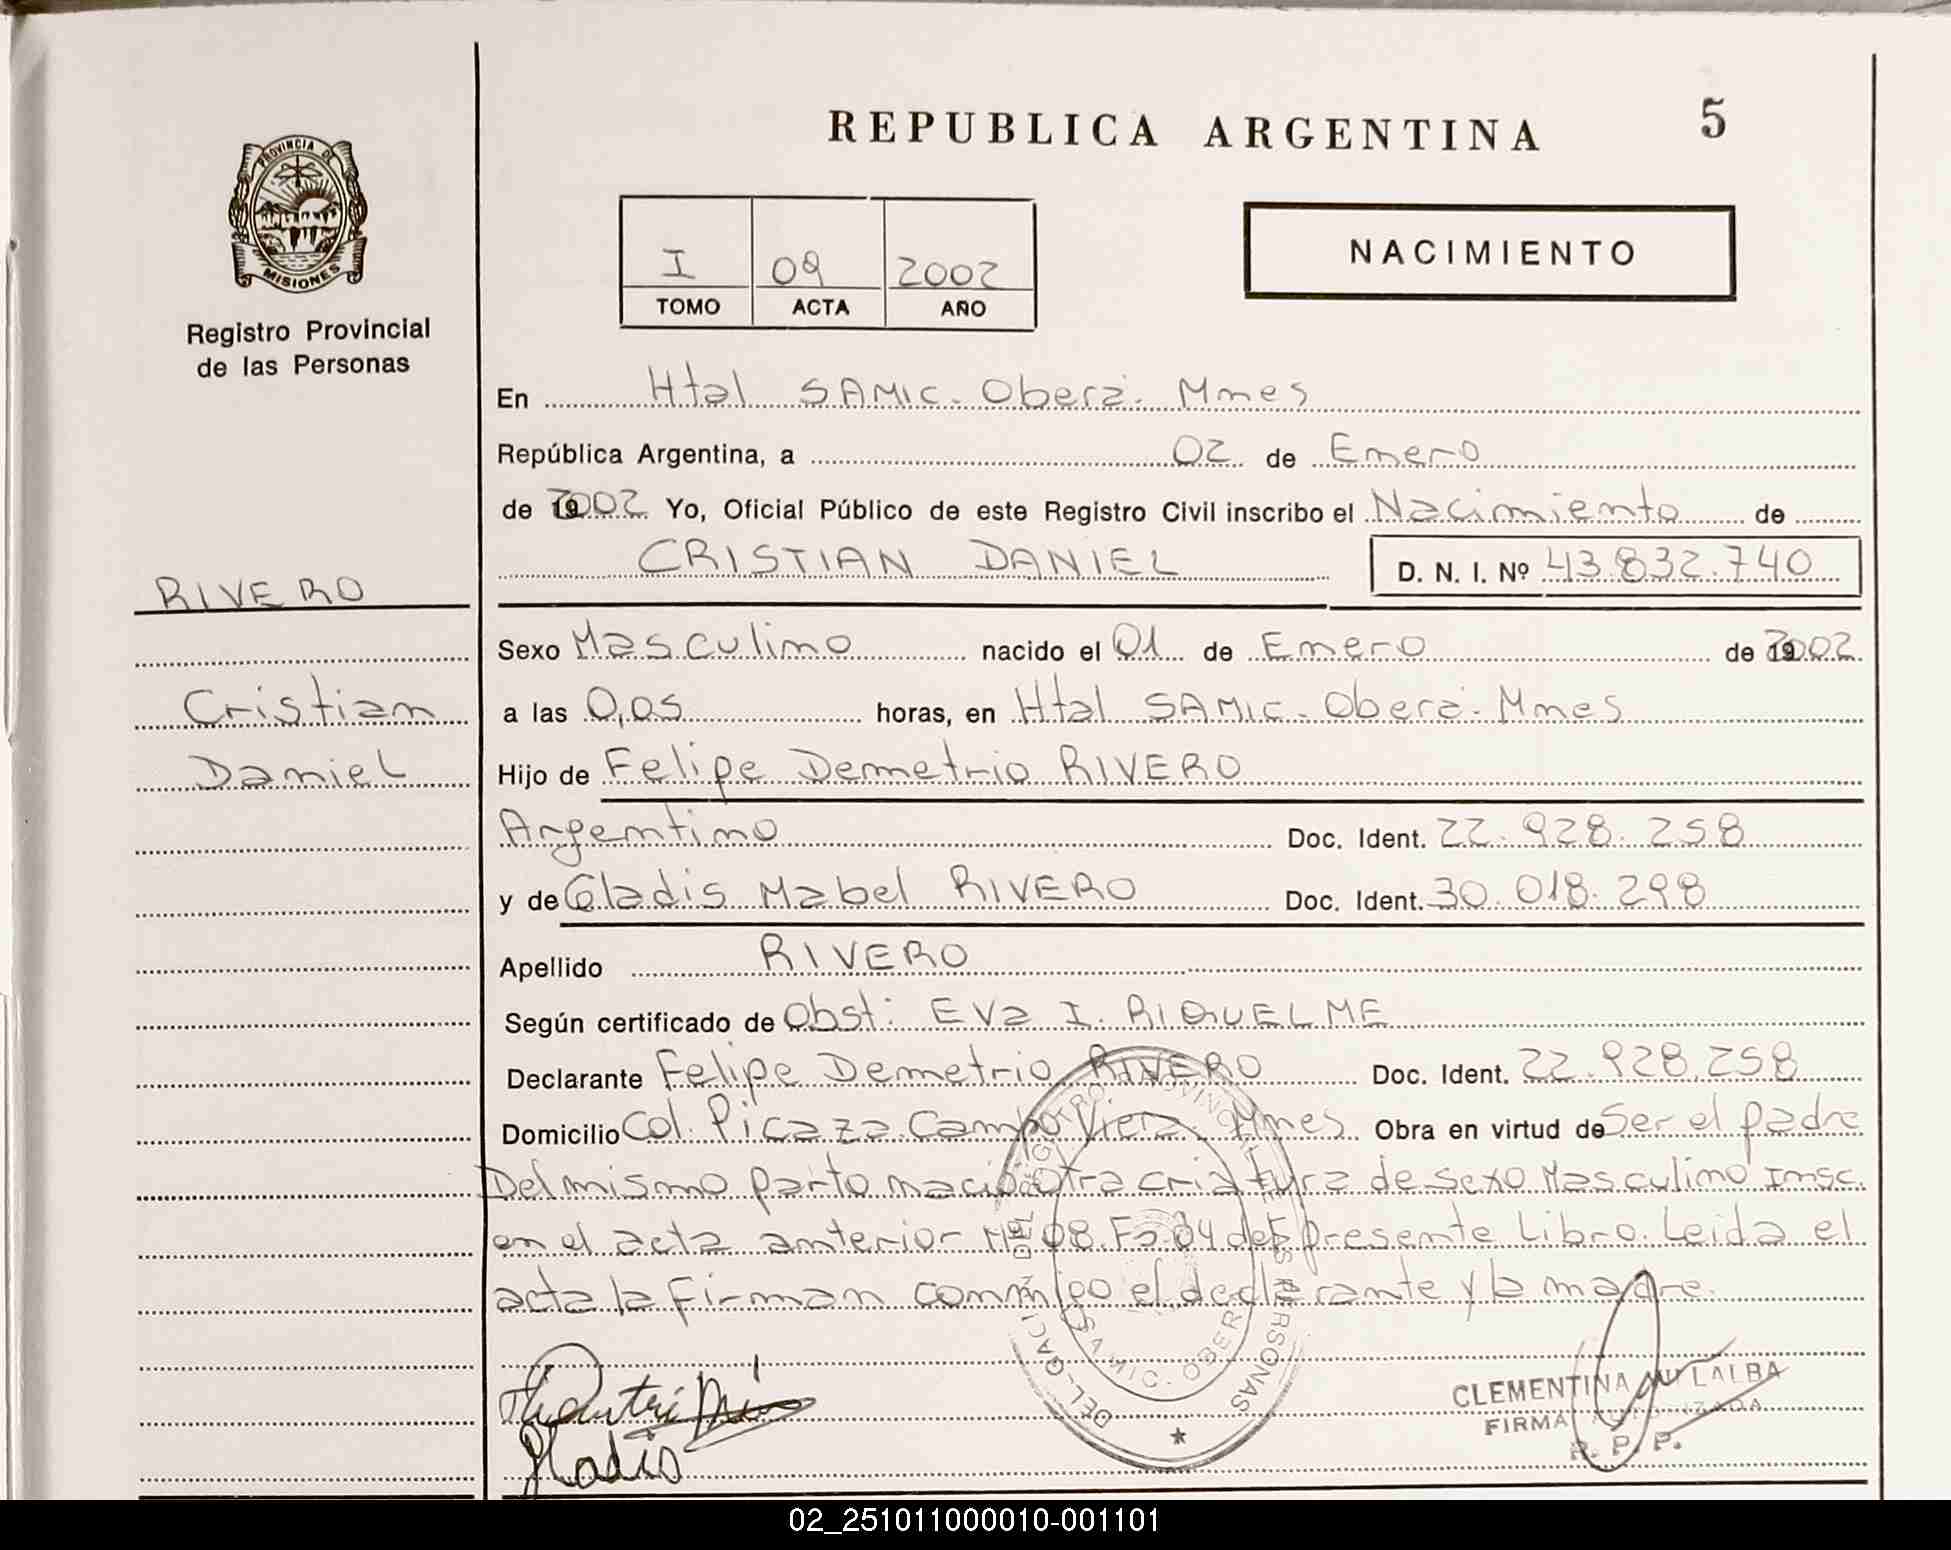 REPUBLICA ARGENTINA
5
PROVINCIA DE
MISIONES
Registro Provincial
de las Personas
I 09 2002
TOMO ACTA AÑO
NACIMIENTO
En Htal SAMIC. Oberá. Mnes
República Argentina, a 02 de Enero
de 2002 Yo, Oficial Público de este Registro Civil inscribo el Nacimiento de
CRISTIAN DANIEL D. N. I. Nº 43.832.740
RIVERO
Cristian
Daniel
Sexo Masculino nacido el 01 de Enero de 2002
a las 0,05 horas, en Htal SAMIC. Oberá. Mnes
Hijo de Felipe Demetrio RIVERO
Argentino Doc. Ident. 22.928.258
y de Gladis Mabel RIVERO Doc. Ident. 30.018.298
Apellido RIVERO
Según certificado de Obst: Eva I. RIQUELME
Declarante Felipe Demetrio RIVERO Doc. Ident. 22.928.258
Domicilio Col. Picaza. Campo Viera. Mnes Obra en virtud de Ser el padre
Del mismo parto nació otra criatura de sexo Masculino Insc.
en el acta anterior Nº 08. Fº 04 del presente Libro. Leida el
acta la firman conmigo el declarante y la madre.
Gladis
CLEMENTINA VILLALBA
FIRMA AUTORIZADA
R. P. P.
02_251011000010-001101